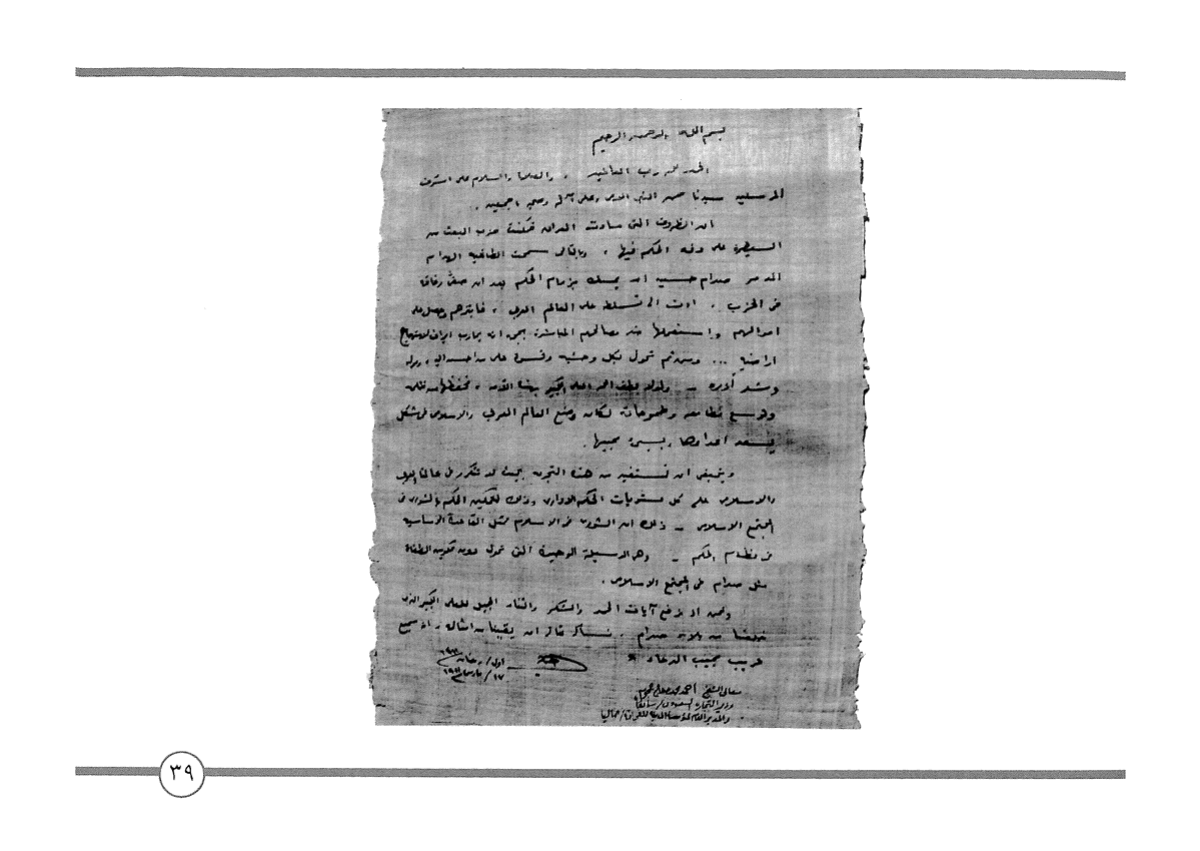 بسم الله الرحمن الرحيم
الحمد لله رب العالمين ، والصلاة والسلام على اشرف
المرسلين سيدنا محمد النبي الامي وعلى آله وصحبه اجمعين .
ان الظروف التي سادت العراق مكنت حزب البعث من
السيطرة على دفة الحكم فيها ، وبالتالي سمحت للطاغية الهدام
المدمر صدام حسين ان يمسك بزمام الحكم بعد ان صفى رفاقه
في الحزب . ادت الى تسلط على العالم العربي ، فابتزهم وحصل على
اموالهم واستعملها ضد مصالحهم المباشرة بحجة انه يحارب ايران
اراضيه ... ومن ثم تحول بكل وحشية وقسوة على من احسن اليه ،
وشد أزره - ولولا لطف الله العلي الكبير بهذا الأمة ،
مطامعه وطموحاته لكان وضع العالم العربي والاسلامي في شكل
يسعد اعداءها محبيها .
وينبغي ان نستفيد من هذه التجربة بحيث لا تتكرر في عالمنا العربي
والاسلامي على كل مستويات الحكم الاداري وذلك لتمكين الحكم بالشورى في
المجتمع الاسلامي - ذلك ان الشورى في الاسلام تمثل القاعدة الاساسية
في نظام الحكم - وهي الوسيلة الوحيدة التي تحول دون تكوين الطغاة
مثل صدام في المجتمع الاسلامي .
ونحن اذ نرفع آيات الحمد والشكر والثناء الجميل للعلي الكبير الذي
خلصنا من بلاء صدام . نسأله تعالى ان يقينا من امثاله ، انه سميع
قريب مجيب الدعاء
اول/رمضان
١٧/مارس
معالي الشيخ أحمد صلاح جمجوم
وزير التجارة السعودي/سابقا
والمدير العام /حاليا
٣٩